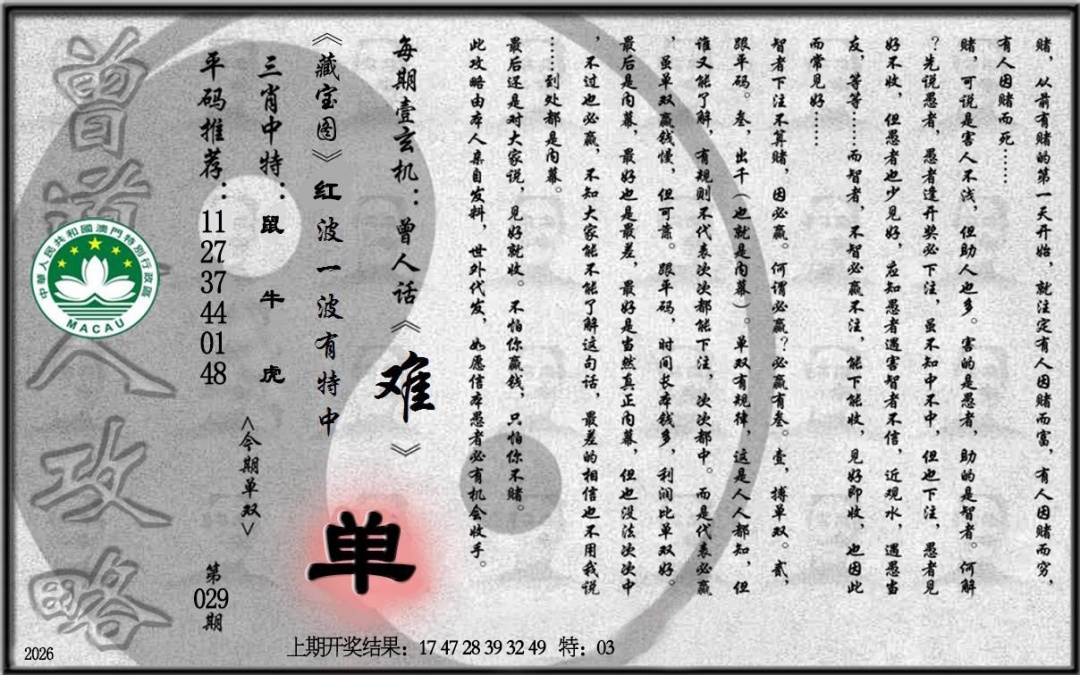 赌，从前有赌的第一天开始，就注定有人因赌而富，有人因赌而穷，
有人因赌而死……
赌，可说是害人不浅，但助人也多。害的是愚者，助的是智者。何解
？先说愚者，愚者逢开奖必下注，虽不知中不中，但也下注，愚者见
好不收，但愚者也少见好，应知愚者遇害智者不信，近观水，遇愚当
友，等等……而智者，不智必赢不注，能下能收，见好即收，也因此
而常见好……
智者下注不算赌，因必赢。何谓必赢？必赢有叁。壹，搏单双。贰，
跟单码。叁，出千（也就是内幕）。单双有规律，这是人人都知，但
谁又能了解，有规则不代表次次都能下注，次次都中。而是代表必赢
，虽单双赢钱慢，但可靠。跟单码，时间长本钱多，利润比单双好。
最后是内幕，最好也是最差，最好是当然真正内幕，但也没法次次中
，不过也必赢，不知大家能不能了解这句话，最差的相信也不用我说
……到处都是内幕。
最后还是对大家说，见好就收。不怕你赢钱，只怕你不赌。
此攻略由本人亲自发料，世外代发，如愿信本愚者必有机会收手。
每期壹玄机：曾人话《难》
《藏宝图》红波一波有特中
单
三肖中特：鼠 牛 虎
<今期单双>
平码推荐：11 27 37 44 01 48
第029期
曾道人攻略
中華人民共和國澳門特別行政區
MACAU
2026
上期开奖结果：17 47 28 39 32 49 特：03